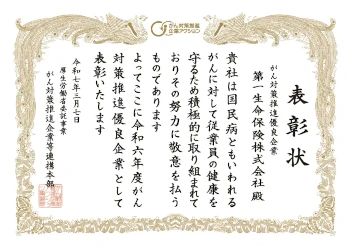 がん対策推進
企業アクション
表彰状
がん対策推進優良企業
第一生命保険株式会社殿
貴社は国民病ともいわれる
がんに対して従業員の健康を
守るため積極的に取り組まれて
おりその努力に敬意を払う
ものであります
よってここに令和六年度がん
対策推進優良企業として
表彰いたします
令和七年三月七日
厚生労働省委託事業
がん対策推進企業等連携本部